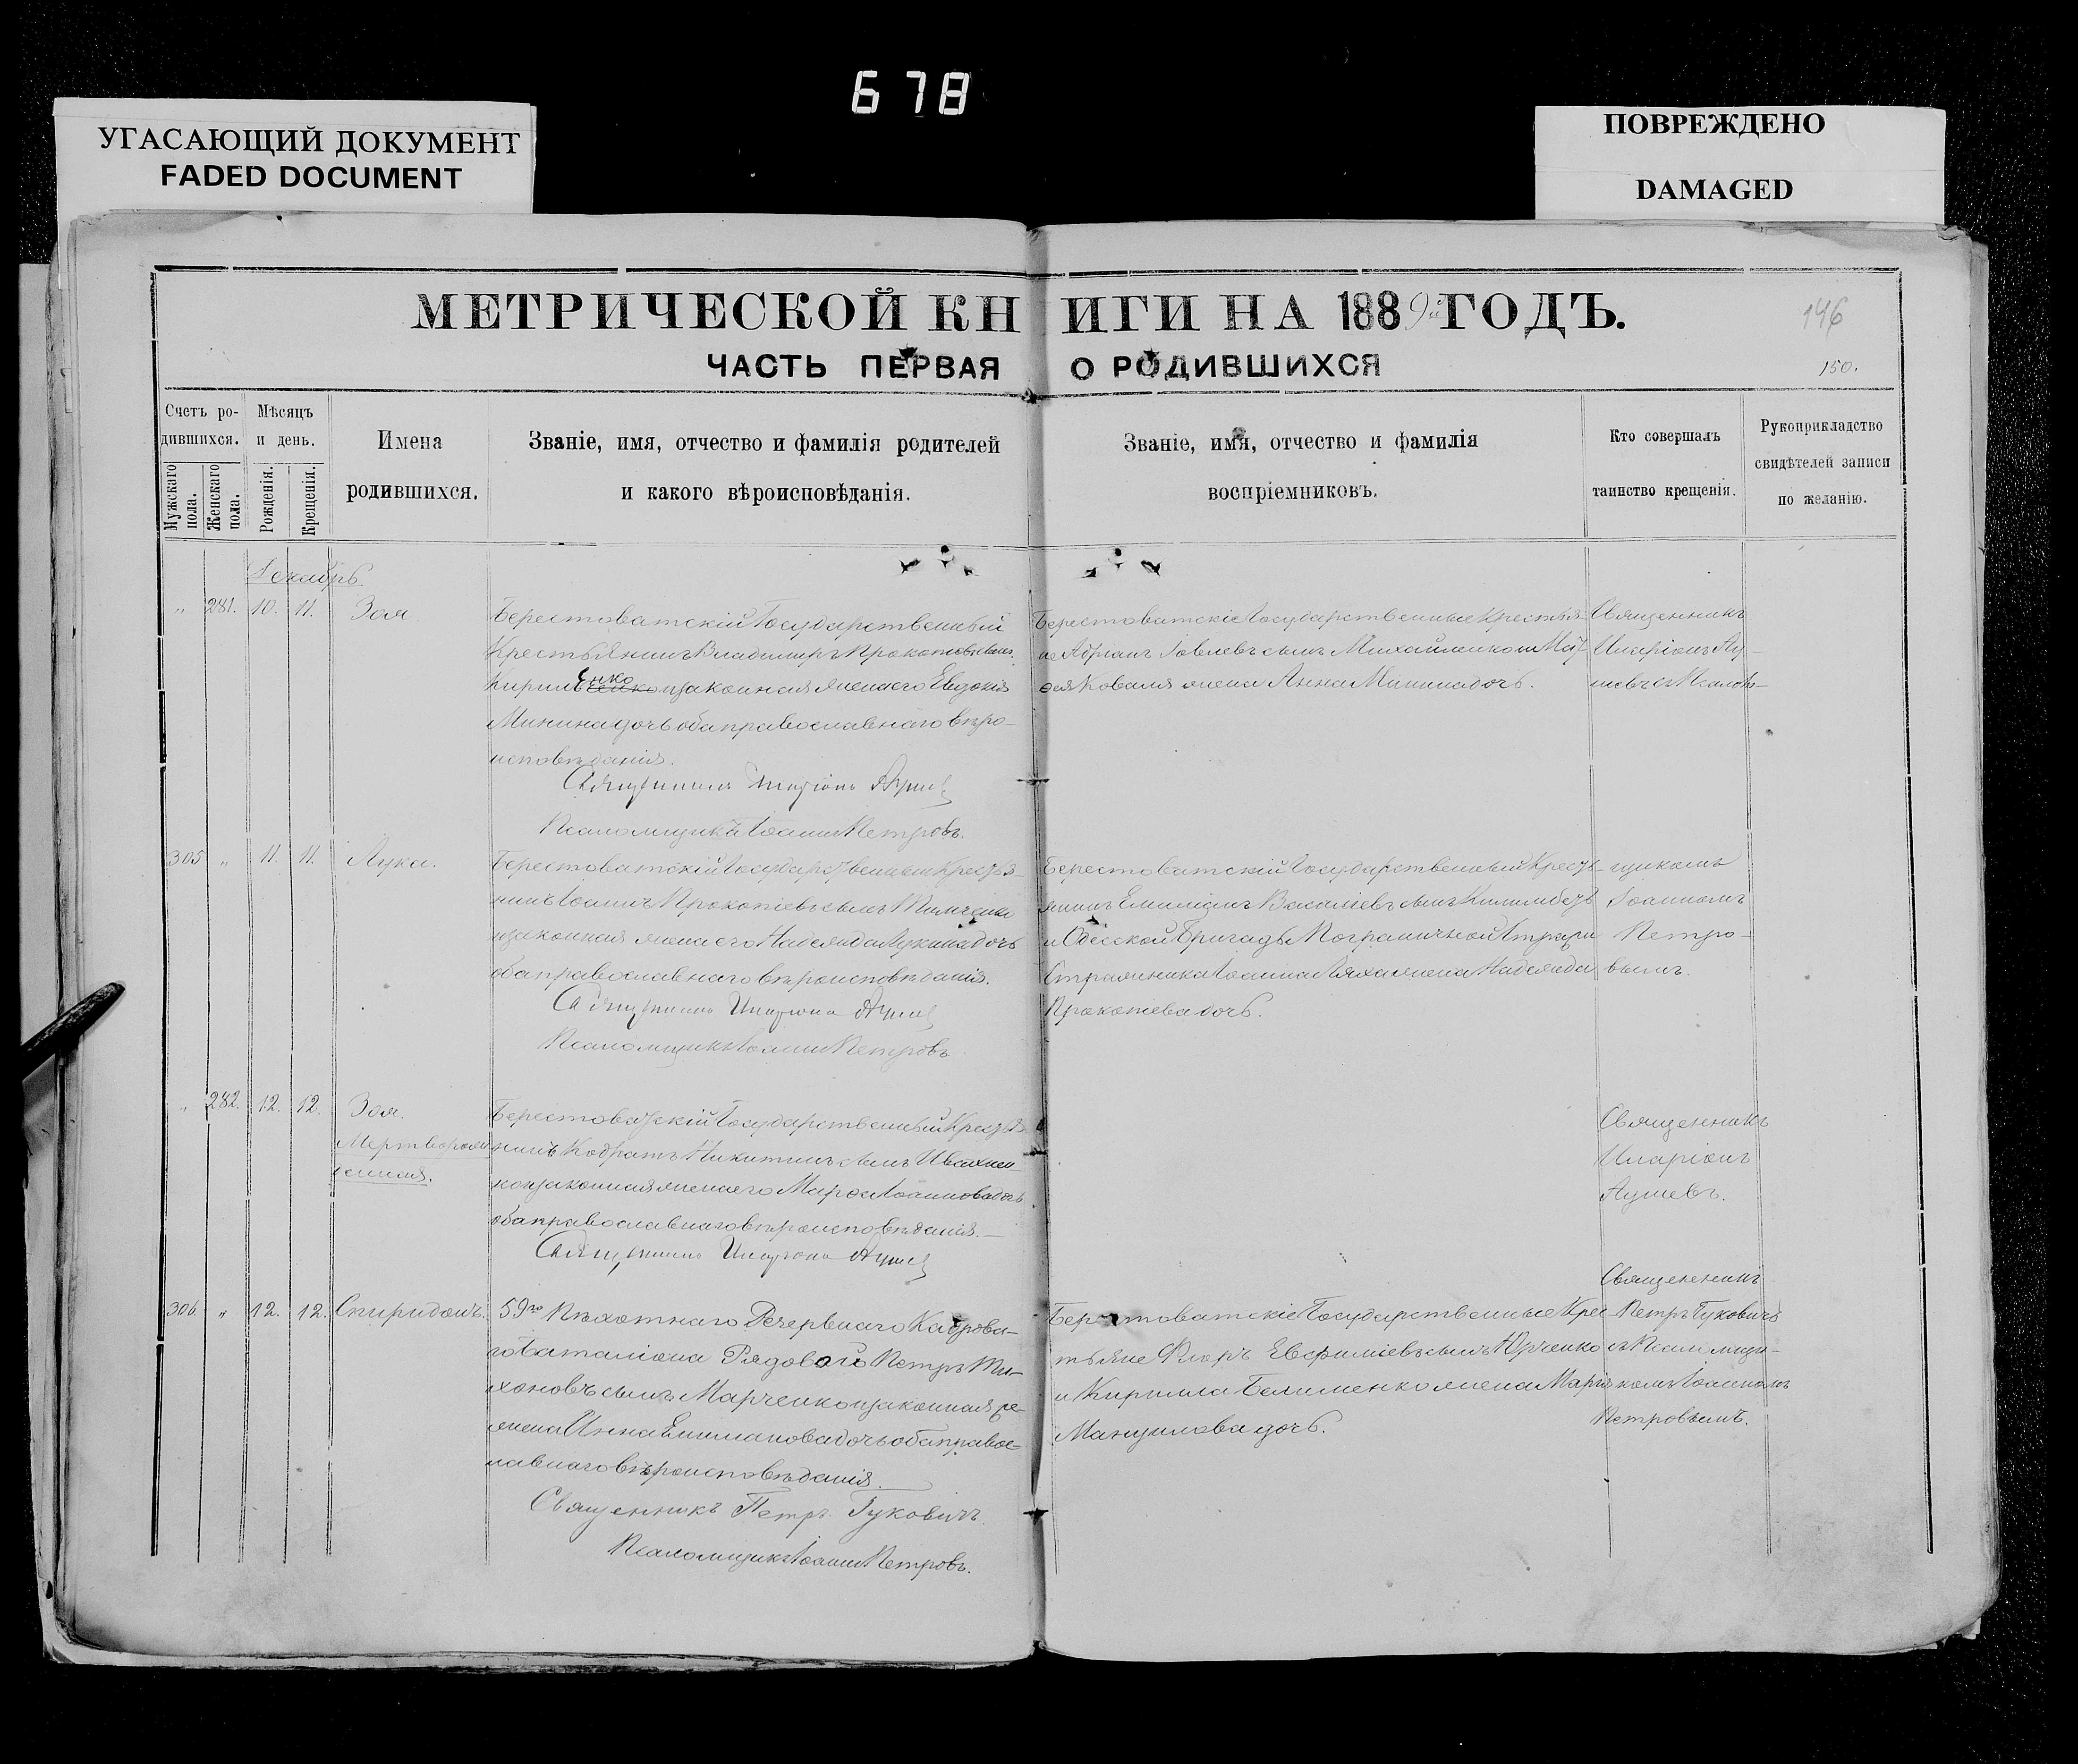 678
УГАСАЮЩИЙ ДОКУМЕНТ
FADED DOCUMENT
ПОВРЕЖДЕНО
DAMAGED
МЕТРИЧЕСКОЙ КНИГИ НА 1889й ГОДЪ.
146
ЧАСТЬ ПЕРВАЯ О РОДИВШИХСЯ
150.
Счетъ ро-
дившихся.
Мужскаго пола.
Женскаго пола.
Мѣсяцъ
и день.
Рожденія.
Крещенія.
Имена
родившихся.
Званіе, имя, отчество и фамилія родителей
и какого вѣроисповѣданія.
Званіе, имя, отчество и фамилія
воспріемниковъ.
Кто совершалъ
таинство крещенія.
Рукоприкладство
свидѣтелей записи
по желанію.
Декабрь.
" 281. 10. 11. Зоя
Берестоватскій Государственный
Крестьянинъ Владимиръ Прокопіевъ сынъ
Кириленко и законная жена его Евдокія
Минина дочь оба православнаго вѣро-
исповѣданія.
Священникъ Иларіонъ
Псаломщикъ Іоаннъ Петровъ.
Берестоватскіе Государственные Крестья-
не Адріанъ Іовлевъ сынъ Михайленко и
Коваля жена Анна Минина дочь.
Священникъ
Иларіонъ
съ Псалом-
305 " 11. 11. Лука.
Берестоватскій Государственный Крестья-
нинъ Іоаннъ Прокопіевъ сынъ Тимченко
и законная жена его Надежда Лукина дочь
оба православнаго вѣроисповѣданія.
Священникъ Иларіонъ
Псаломщикъ Іоаннъ Петровъ
Берестоватскій Государственный Кресть-
янинъ Емиліанъ сынъ
и Одесской Бригады Пограничной Стражи
Стражника Іоанна Ляха жена Надежда
Прокопіева дочь.
щикомъ
Іоанномъ
Петро-
вымъ.
" 282. 12. 12. Зоя.
Мертворож
денная.
Берестоватскій Государственный Крестья-
нинъ Кодратъ Никитинъ сынъ Ивахнен
ко и законная жена его Марѳа Іоаннова дочь
оба православнаго вѣроисповѣданія.—
Священникъ Иларіонъ
Священникъ
Иларіонъ
306 " 12. 12. Спиридонъ.
59го Пѣхотнаго Резервнаго Кадрова-
го Баталіона Рядовой Петръ Ти-
хоновъ сынъ Марченко и законная его
жена Анна дочь оба правос-
лавнаго вѣроисповѣданія.
Священникъ Петръ Гуковичъ
Псаломщикъ Іоаннъ Петровъ.
Берестоватскіе Государственные Крес-
тьяне Флоръ Евфиміевъ сынъ Юрченко
и Кирилла жена Марія
дочь.
Священникъ
Петръ Гуковичъ
съ Псаломщи-
комъ Іоанномъ
Петровымъ.